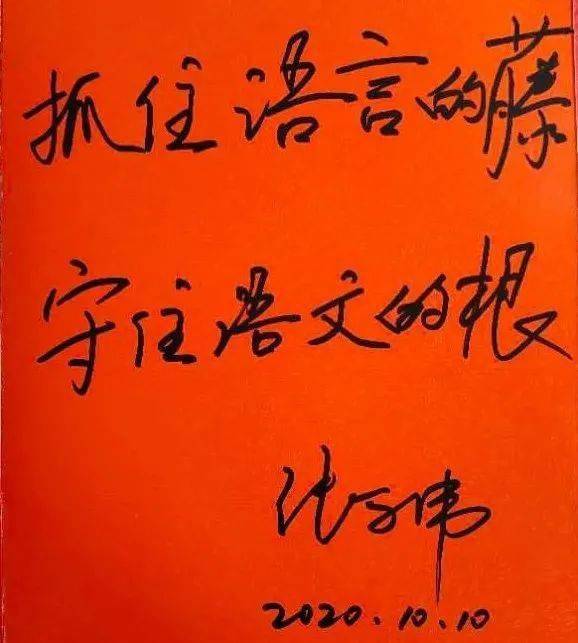 抓住语言的藤
守住语文的根
张学伟
2020.10.10